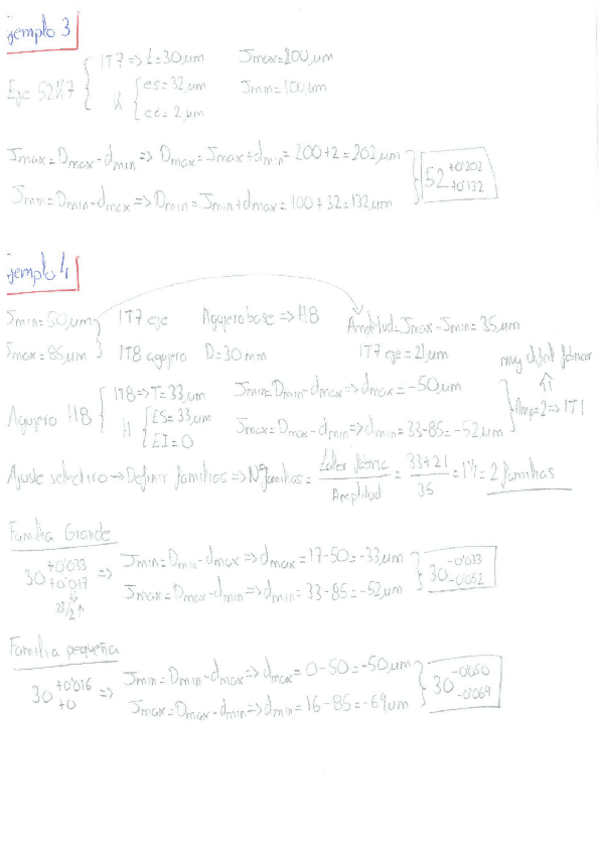 jemplo 3
Eje 52k7 { IT7 => t = 30 μm Jmax = 200 μm
k { es = 32 μm Jmin = 100 μm
ei = 2 μm
Jmax = Dmax - dmin => Dmax = Jmax + dmin = 200 + 2 = 202 μm
Jmin = Dmin - dmax => Dmin = Jmin + dmax = 100 + 32 = 132 μm } 52 +0'202 +0'132
jemplo 4
Jmin = 50 μm IT7 eje Agujero base => H8 Amplitud = Jmax - Jmin = 35 μm
Jmax = 85 μm IT8 agujero D = 30 mm IT7 eje = 21 μm
muy difícil fabricar
Agujero H8 { IT8 => T = 33 μm Jmin = Dmin - dmax => dmax = -50 μm
H { ES = 33 μm EI = 0 Jmax = Dmax - dmin => dmin = 33 - 85 = -52 μm } Amp = 2 => IT1
Ajuste selectivo → Definir familias => Nº familias = / Amplitud = 33 + 21 / 35 = 1'4 = 2 familias
Familia Grande
30 +0'033 +0'017 => Jmin = Dmin - dmax => dmax = 17 - 50 = -33 μm
33/2 Jmax = Dmax - dmin => dmin = 33 - 85 = -52 μm } 30 -0'033 -0'052
Familia pequeña
30 +0'016 +0 => Jmin = Dmin - dmax => dmax = 0 - 50 = -50 μm
Jmax = Dmax - dmin => dmin = 16 - 85 = -69 μm } 30 -0'050 -0'069